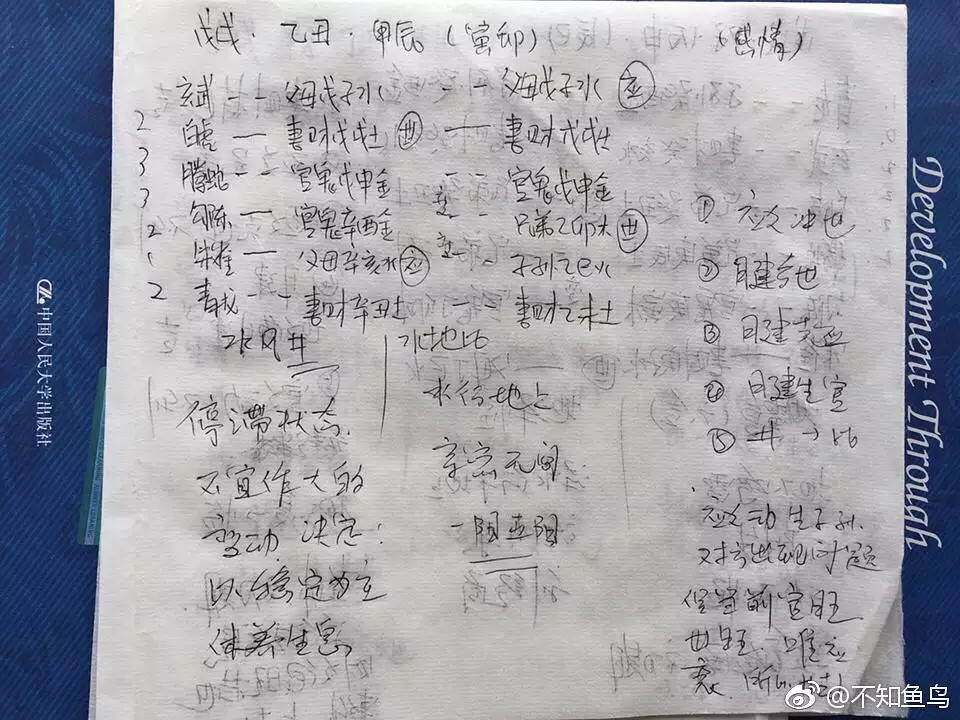 戊戌·乙丑·甲辰(寅卯) (感情)
玄武 -- 父母戊子水 -- 父母戊子水 应
2 白虎 — 妻财戊戌土 世 — 妻财戊戌土
3 腾蛇 -- 官鬼戊申金 -- 官鬼戊申金
3 勾陈 — 官鬼辛酉金 -- 兄弟乙卯木 世
2 朱雀 — 父母辛亥水 应 -- 子孙乙巳火
2 青龙 -- 妻财辛丑土 妻财乙未土
水风井
停滞状态.
不宜作大的
变动 决定:
以稳定为主
休养生息
水地比
水行地上
亲密无间
一阳五阴
① 应爻冲世
② 日建合世
③ 月建克应
④ 月建生官
⑤ 井→比
应爻动 生子孙.
对方出现问题
官旺
世旺. 唯应
衰.
中国人民大学出版社
Development Through
@不知鱼鸟